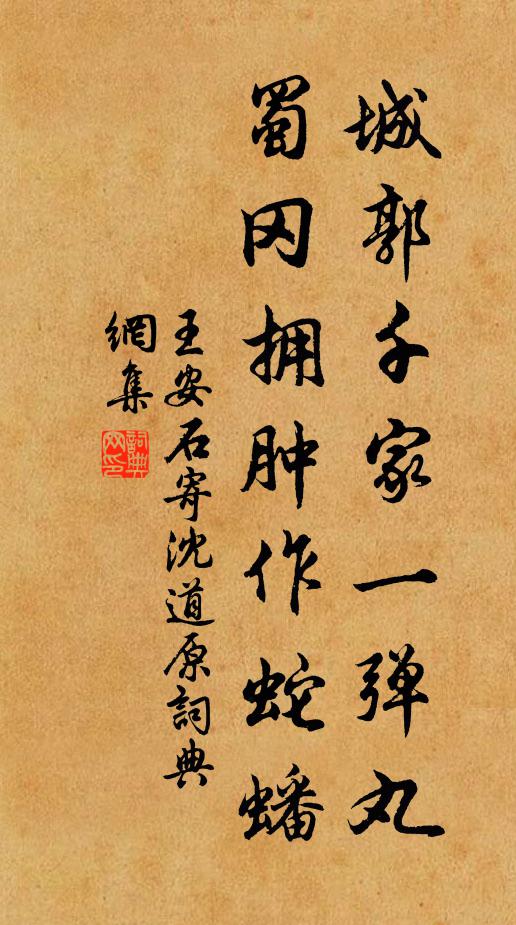 城郭千家一弹丸
蜀冈拥肿作蛇蟠
王安石寄沈道原詞典
網集
詞典
网印